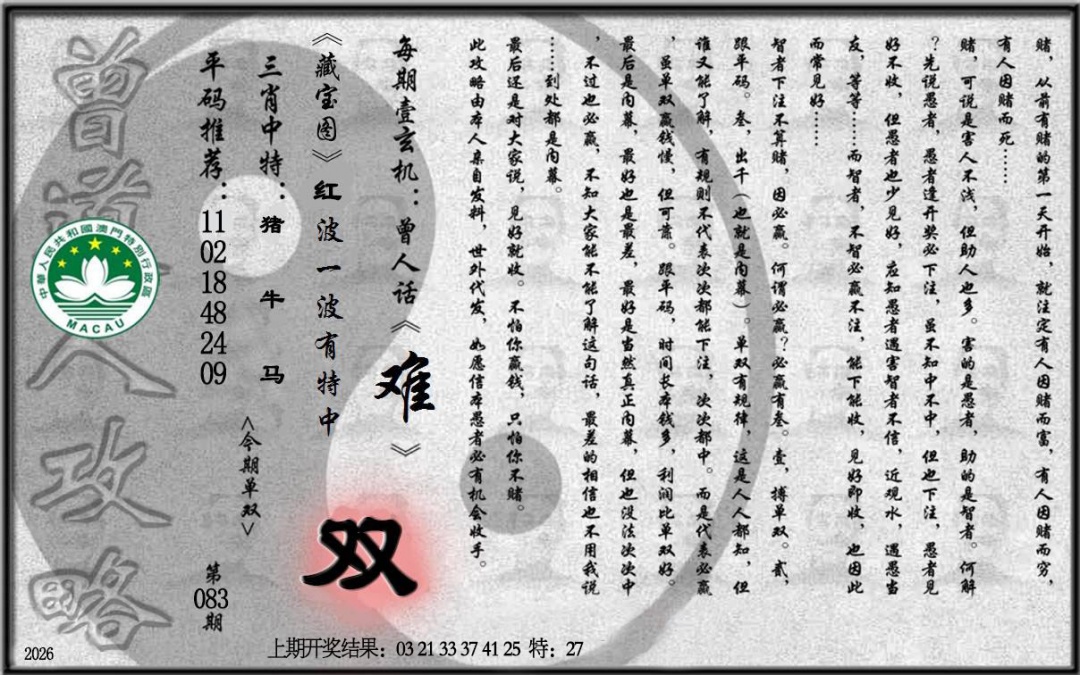 赌，从前有赌的第一天开始，就注定有人因赌而富，有人因赌而穷，
有人因赌而死……
赌，可说是害人不浅，但助人也多。害的是愚者，助的是智者。何解
？先说愚者，愚者逢开奖必下注，虽不知中不中，但也下注，愚者见
好不收，但愚者也少见好，应知愚者遇害智者不信，近观水，遇愚当
友，等等……而智者，不智必赢不注，能下能收，见好即收，也因此
而常见好……
智者下注不算赌，因必赢。何谓必赢？必赢有叁。壹，搏单双。贰，
跟平码。叁，出千（也就是内幕）。单双有规律，这是人人都知，但
谁又能了解，有规则不代表次次都能下注，次次都中。而是代表必赢
，虽单双赢钱慢，但可靠。跟平码，时间长本钱多，利润比单双好。
最后是内幕，最好也是最差，最好是当然真正内幕，但也没法次次中
，不过也必赢，不知大家能不能了解这句话，最差的相信也不用我说
……到处都是内幕。
最后还是对大家说，见好就收。不怕你赢钱，只怕你不赌。
此攻略由本人亲自发料，世外代发，如愿信本愚者必有机会收手。
每期壹玄机：曾人话《难》
《藏宝图》红波一波有特中
双
三肖中特：猪牛马
平码推荐：11 02 18 48 24 09
<今期单双>
第083期
曾道人攻略
中華人民共和國澳門特別行政區
MACAU
上期开奖结果：03 21 33 37 41 25 特：27
2026